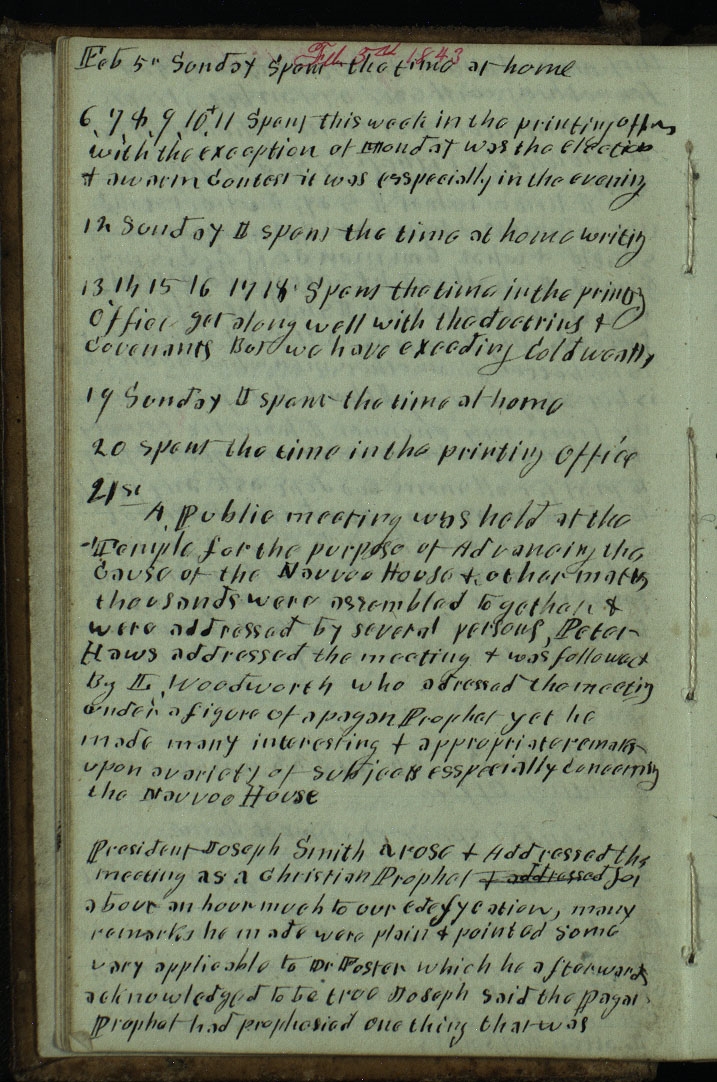 Feb 5th 1843
Feb 5th Sunday Spent the time at home
6, 7, 8, 9, 10, + 11 Spent this week in the printing office
with the exception of Monday was the election
+ a warm Contest it was esspecially in the evening
12 Sunday I spent the time at home writing
13 14 15 16 17 18 Spent the time in the printing
Office get along well with the doctrins &
Covenants But we have exceeding Cold weather
19 Sunday I spent the time at home
20 spent the time in the printing Office
21st
A Public meeting was held at the
Temple for the purpose of Advancing the
Cause of the Nauvoo House + other matters
thousands were assembled together &
were addressed by several persons, Peter
Haws addressed the meeting + was followed
By L, Woodworth who adressed the meeting
under a figure of a pagan Prophet yet he
made many interesting + appropriate remarks
upon a variety of subjects esspecially concerning
the Nauvoo House
President Joseph Smith arose + Addressed the
meeting as a Christian Prophet + addressed for
about an hour much to our edefycation, many
remarks he made were plain & pointed some
vary applicable to Dr Foster which he afterwards
acknowledged to be true Joseph said the Pagan
Prophet had prophesied one thing that was